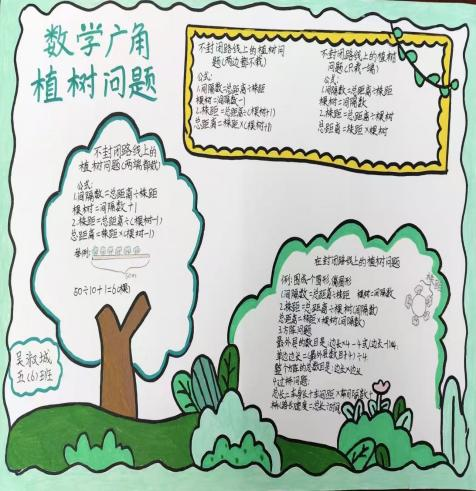 数学广角
植树问题
不封闭路线上的植树问
题(两边都不栽)
公式:
1.间隔数=总距离÷株距
棵树=间隔数-1
2.株距=总距离÷(棵树+1)
总距离=株距×(棵树+1)
不封闭路线上的植树
问题(只栽一端)
公式:
1.间隔数=总距离÷株距
棵树=间隔数
2.株距=总距离÷棵树
总距离=株距×棵树
不封闭路线上的
植树问题(两端都栽)
公式:
1.间隔数=总距离÷株距
棵树=间隔数+1
2.株距=总距离÷(棵树-1)
总距离=株距×(棵树-1)
举例:
50m
50÷10+1=6(棵)
在封闭路线上的植树问题
例:围成一个圆形,
1.间隔数=总距离÷株距 棵树=间隔数
2.株距=总距离÷棵树(间隔数)
总距离=株距×棵树(间隔数)
3.方阵问题
最外层的数目是:边长×4-4或(边长-1)×4,
单边边长=(最外层数目+4)÷4
整个方阵的总数目是:边长×边长
4.过桥问题:
株距
吴
五(6)班